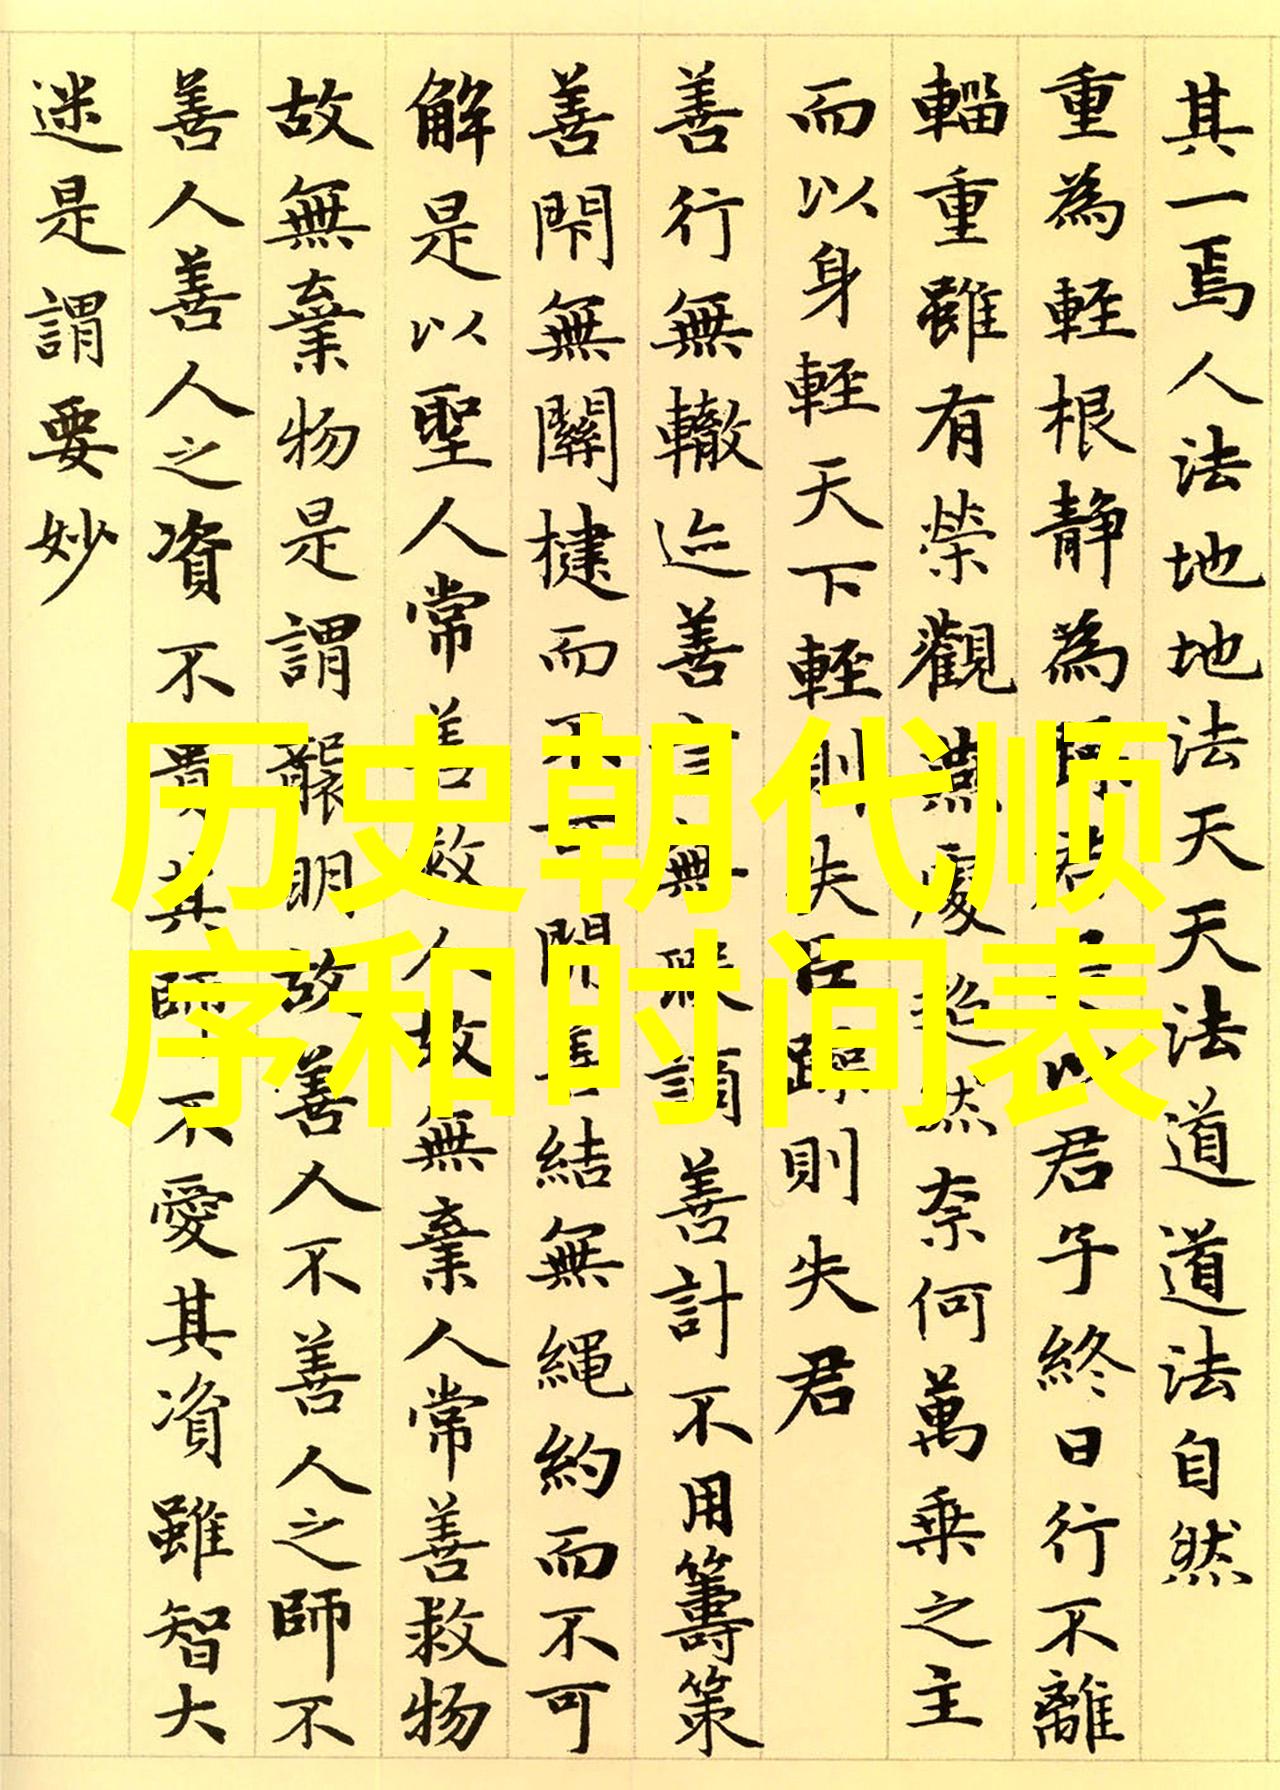 其一焉人法地地法天天法道道法自然
重為輕根靜為躁君是以君子終日行不離
輜重雖有榮觀燕處超然奈何萬乘之主
而以身輕天下輕則失臣躁則失君
善行無轍迹善言無瑕謫善計不用籌策
善閇無關楗而不可開善結無繩約而不可
解是以聖人常善救人故無棄人常善救物
故無棄物是謂襲明故善人不善人之師不
善人善人之資不貴其師不愛其資雖智大
迷是謂要妙
历史朝代顺
序和时间表